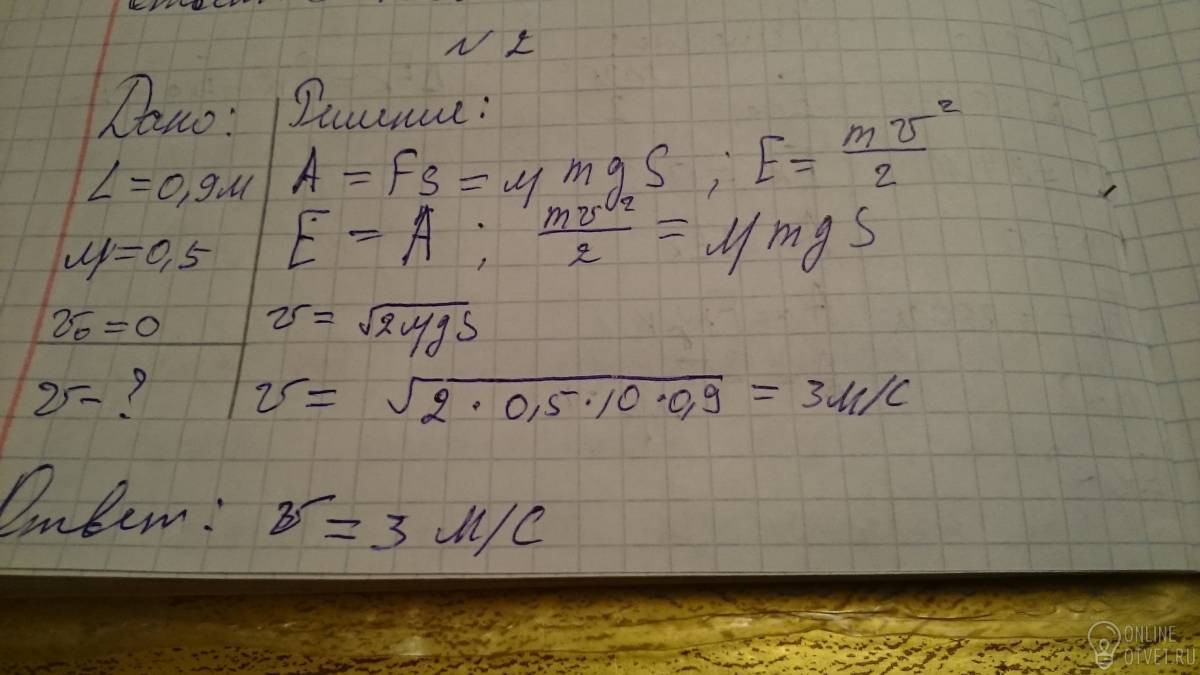 N 2
Дано:
L = 0,9м
μ = 0,5
v₀ = 0
v - ?
Решение:
A = FS = μmgS ; E = mv²/2
E = A ; mv²/2 = μmgS
v = √2μgS
v = √2·0,5·10·0,9 = 3м/с
Ответ: v = 3 м/с
ONLINE
OTVET.RU